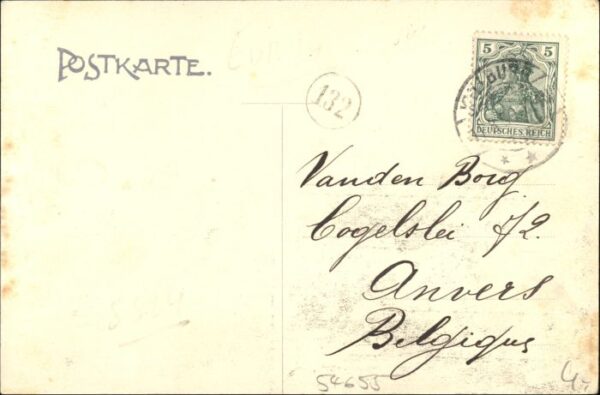 POSTKARTE.
5 5
DEUTSCHES REICH
132
Vanden Borg
Cogelslei 72.
Anvers
Belgique
54655